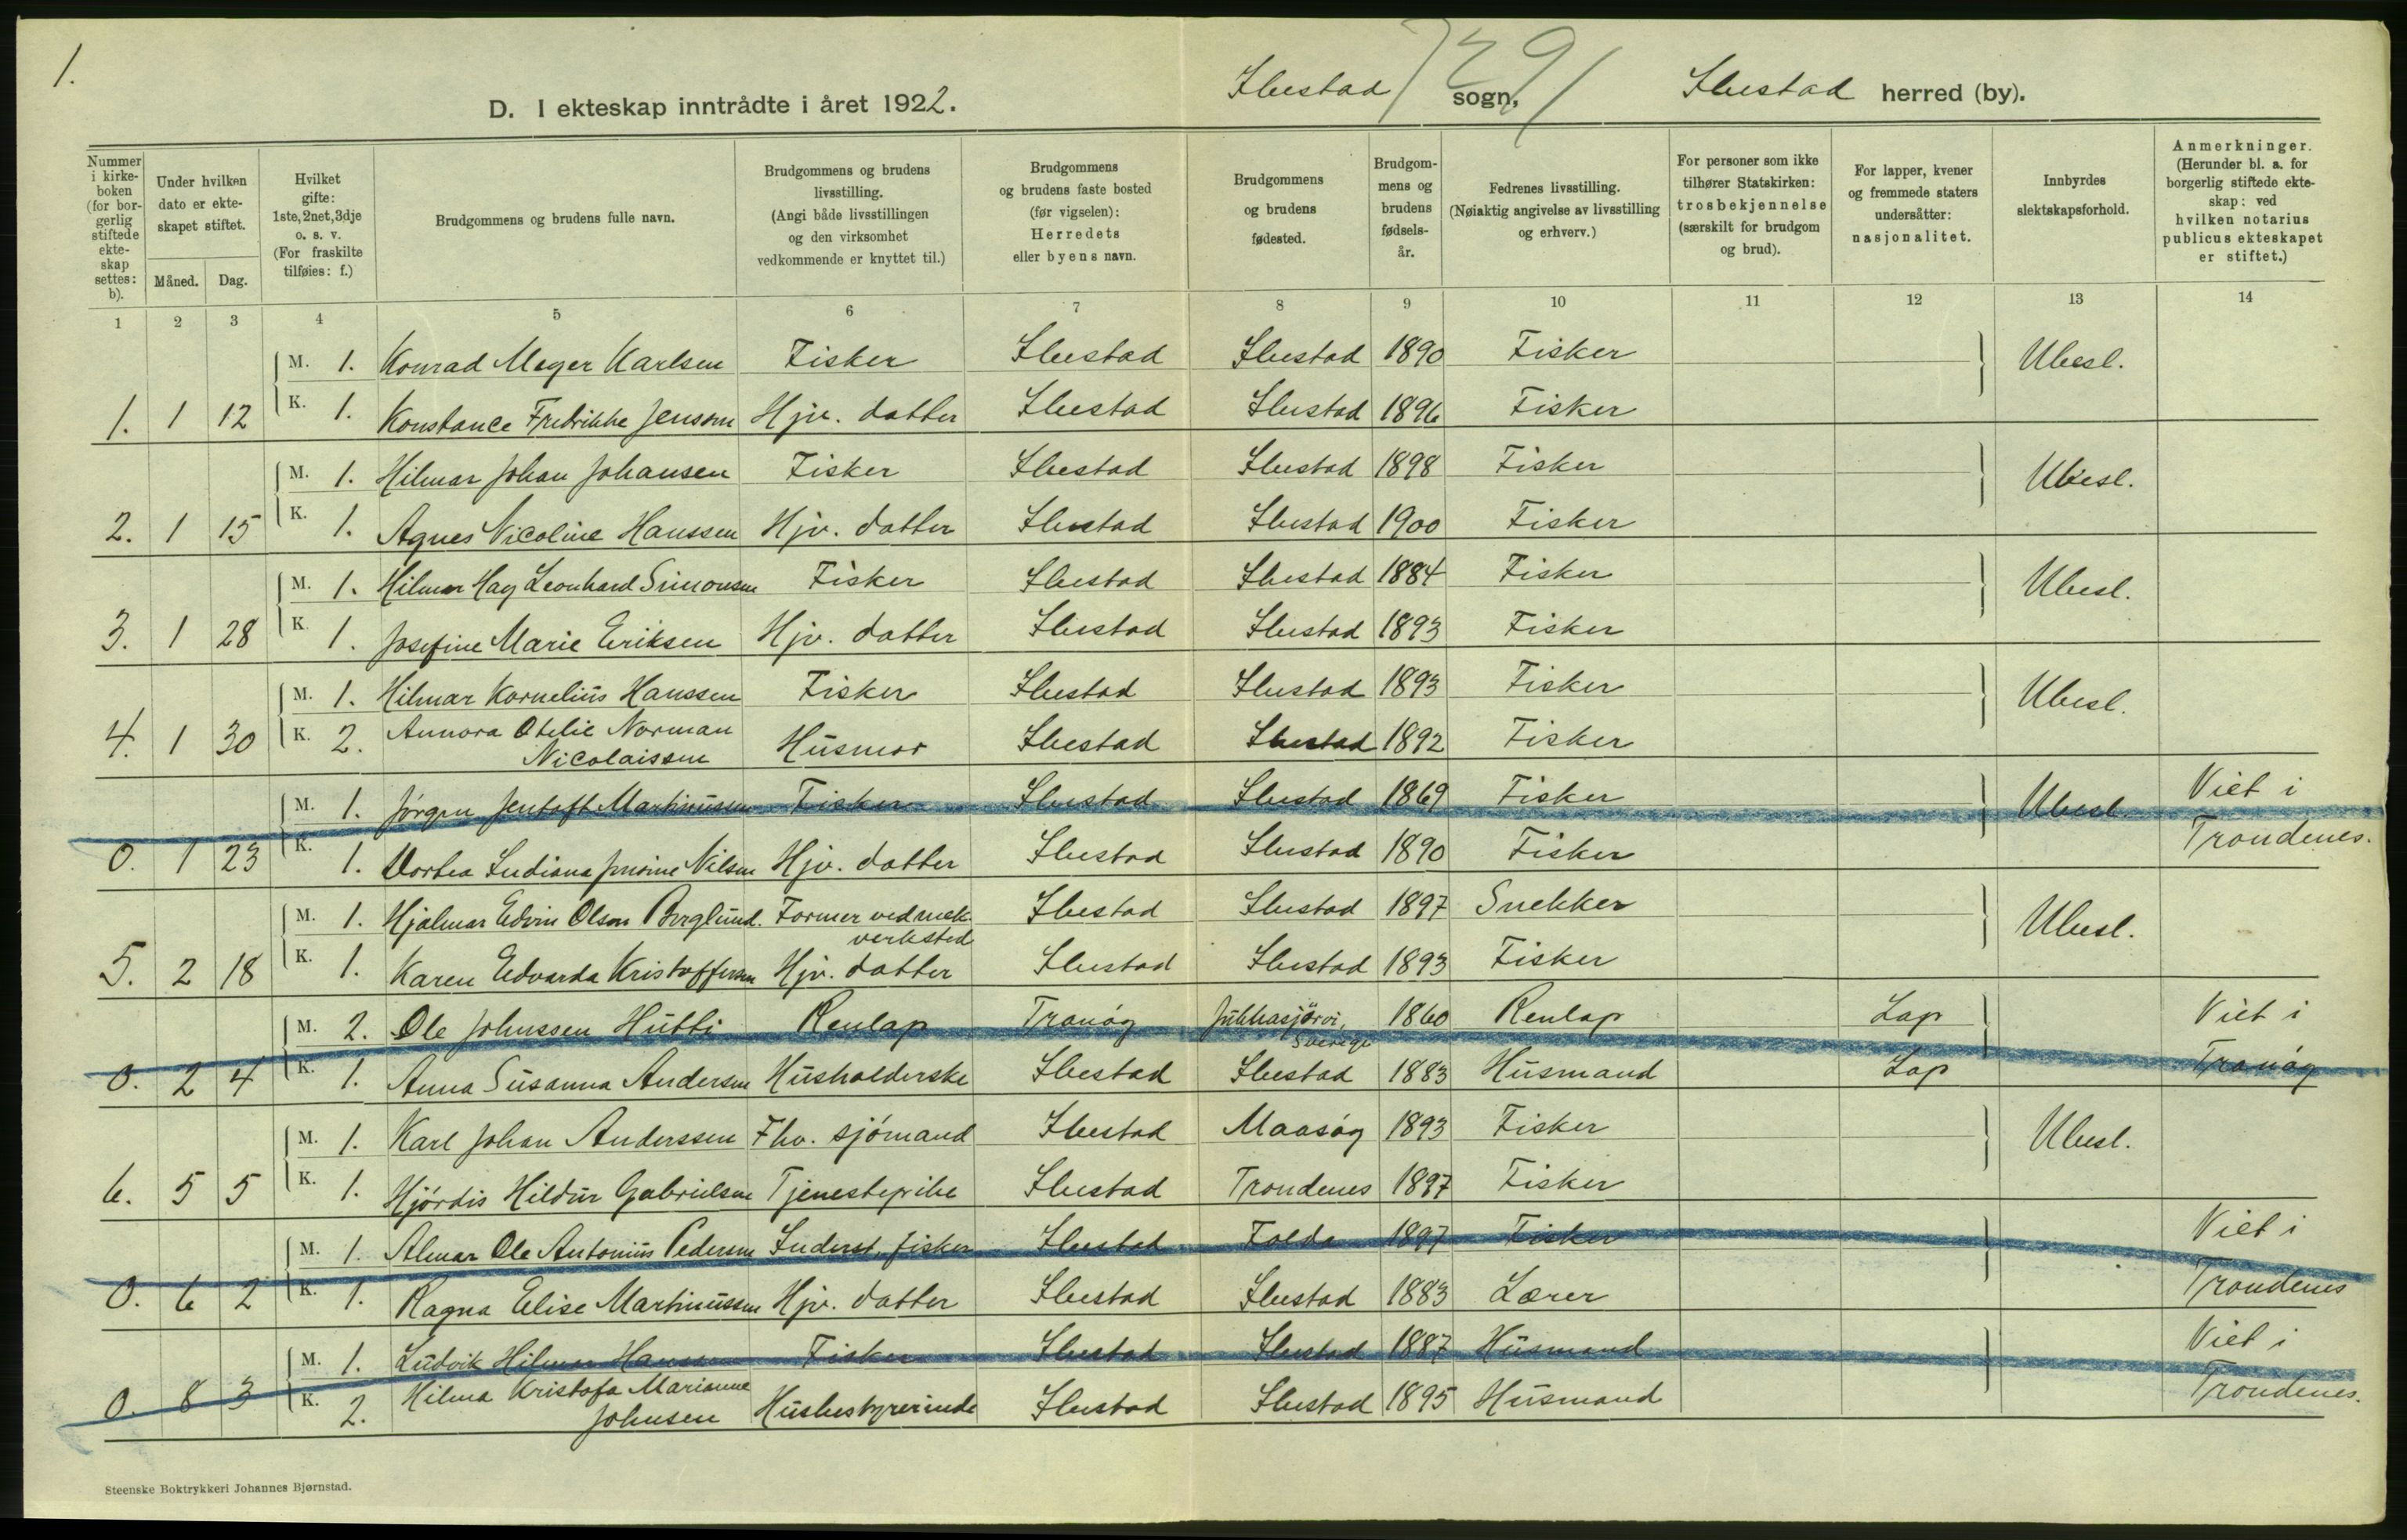 1.
D. I ekteskap inntrådte i året 1922.
Ibestad sogn,
729
Ibestad herred (by).
Nummer i kirkeboken (for borgerlig stiftede ekteskap settes: b).
Under hvilken dato er ekteskapet stiftet.
Måned. Dag.
Hvilket gifte: 1ste, 2net, 3dje o. s. v. (For fraskilte tilføies: f.)
Brudgommens og brudens fulle navn.
Brudgommens og brudens livsstilling. (Angi både livsstillingen og den virksomhet vedkommende er knyttet til.)
Brudgommens og brudens faste bosted (før vigselen): Herredets eller byens navn.
Brudgommens og brudens fødested.
Brudgommens og brudens fødselsår.
Fedrenes livsstilling. (Nøiaktig angivelse av livsstilling og erhverv.)
For personer som ikke tilhører Statskirken: trosbekjennelse (særskilt for brudgom og brud).
For lapper, kvener og fremmede staters undersåtter: nasjonalitet.
Innbyrdes slektskapsforhold.
Anmerkninger. (Herunder bl. a. for borgerlig stiftede ekteskap: ved hvilken notarius publicus ekteskapet er stiftet.)
1 2 3 4 5 6 7 8 9 10 11 12 13 14
M. 1. Konrad Meyer Karlsen Fisker Ibestad Ibestad 1890 Fisker Ubesl.
1. 1 12 K. 1. Konstance Fredrikke Jensen Hjv. datter Ibestad Ibestad 1896 Fisker
M. 1. Hilmar Johan Johansen Fisker Ibestad Ibestad 1898 Fisker Ubesl.
2. 1 15 K. 1. Agnes Nicoline Hanssen Hjv. datter Ibestad Ibestad 1900 Fisker
M. 1. Hilmar Hag Leonhard Simonsen Fisker Ibestad Ibestad 1884 Fisker Ubesl.
3. 1 28 K. 1. Josefine Marie Eriksen Hjv. datter Ibestad Ibestad 1893 Fisker
M. 1. Hilmar Kornelius Hanssen Fisker Ibestad Ibestad 1893 Fisker Ubesl.
4. 1 30 K. 2. Annora Otelie Norman Nicolaissen Husmor Ibestad Ibestad 1892 Fisker
M. 1. Jørgen Jentoft Martinussen Fisker Ibestad Ibestad 1869 Fisker Ubesl. Viet i
0. 1 23 K. 1. Dortea Indiana Jensine Nilsen Hjv. datter Ibestad Ibestad 1890 Fisker Trondenes.
M. 1. Hjalmar Edvin Olsen Berglund. Former ved mek. verksted Ibestad Ibestad 1897 Snekker Ubesl.
5. 2 18 K. 1. Karen Edvarda Kristoffersen Hjv. datter Ibestad Ibestad 1893 Fisker
M. 2. Ole Johnssen Hutti Renlap Tranøy Jukkasjärvi, Sverige 1860 Renlap Lap Viet i
0. 2 4 K. 1. Anna Susanna Andersen Husholderske Ibestad Ibestad 1883 Husmand Lap Tranøy
M. 1. Karl Johan Anderssen Fhv. sjømand Ibestad Maasøy 1893 Fisker Ubesl.
6. 5 5 K. 1. Hjørdis Hildur Gabrielsen Tjenestepike Ibestad Trondenes 1897 Fisker
M. 1. Almar Ole Antonius Pedersen Inderst, fisker Ibestad Folda 1897 Fisker Viet i
0. 6 2 K. 1. Ragna Elise Martinussen Hjv. datter Ibestad Ibestad 1883 Lærer Trondenes
M. 1. Ludvik Hilmar Hanssen Fisker Ibestad Ibestad 1887 Husmand Viet i
0. 8 3 K. 2. Hilma Kristofa Marianne Johnsen Husbestyrerinde Ibestad Ibestad 1895 Husmand Trondenes.
Steenske Boktrykkeri Johannes Bjørnstad.